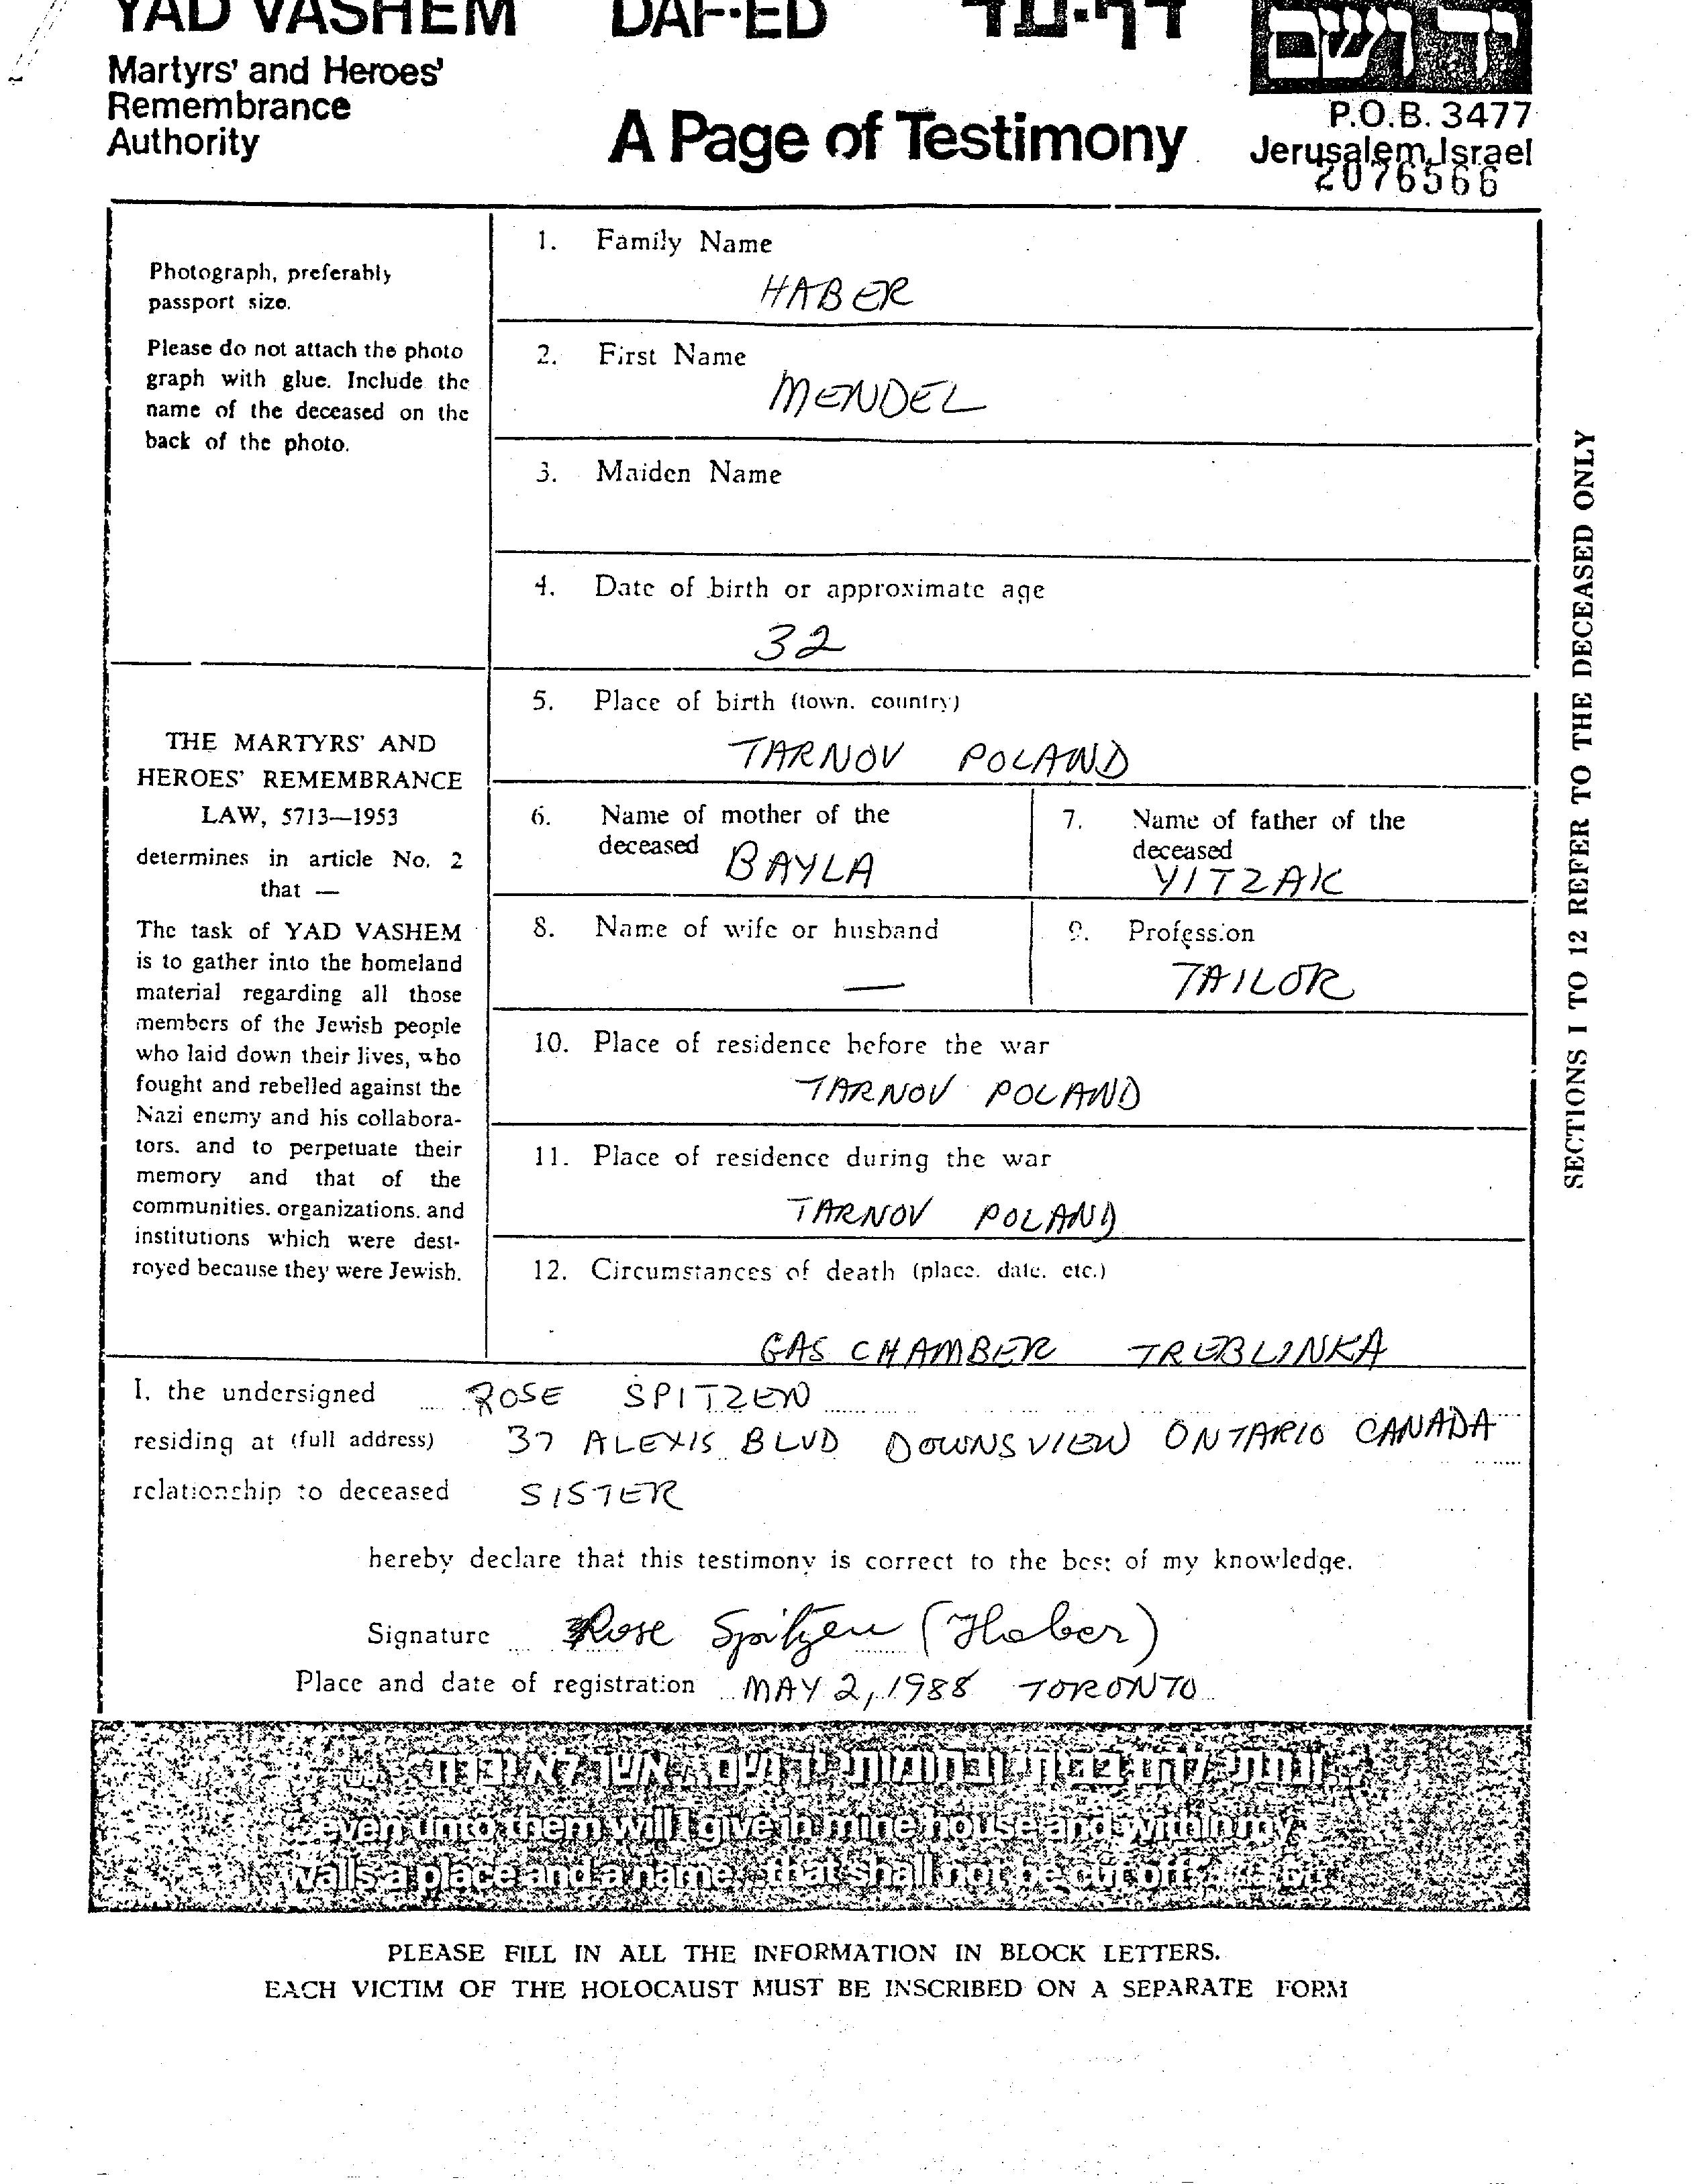 YAD VASHEM DAF-ED דף-עד יד ושם
Martyrs' and Heroes'
Remembrance
Authority
A Page of Testimony
P.O.B. 3477
Jerusalem, Israel
2076566
Photograph, preferably
passport size.
Please do not attach the photo
graph with glue. Include the
name of the deceased on the
back of the photo.
THE MARTYRS' AND
HEROES' REMEMBRANCE
LAW, 5713—1953
determines in article No. 2
that —
The task of YAD VASHEM
is to gather into the homeland
material regarding all those
members of the Jewish people
who laid down their lives, who
fought and rebelled against the
Nazi enemy and his collabora-
tors. and to perpetuate their
memory and that of the
communities. organizations. and
institutions which were dest-
royed because they were Jewish.
1. Family Name
HABER
2. First Name
MENDEL
3. Maiden Name
4. Date of birth or approximate age
32
5. Place of birth (town. country)
TARNOV POLAND
6. Name of mother of the
deceased BAYLA
7. Name of father of the
deceased
YITZAK
8. Name of wife or husband
—
9. Profession
TAILOR
10. Place of residence before the war
TARNOV POLAND
11. Place of residence during the war
TARNOV POLAND
12. Circumstances of death (place. date. etc.)
GAS CHAMBER TREBLINKA
SECTIONS 1 TO 12 REFER TO THE DECEASED ONLY
I, the undersigned ROSE SPITZEN
residing at (full address) 37 ALEXIS BLVD DOWNSVIEW ONTARIO CANADA
relationship to deceased SISTER
hereby declare that this testimony is correct to the best of my knowledge.
Signature Rose Spitzen (Haber)
Place and date of registration MAY 2, 1988 TORONTO
...ונתתי להם בביתי ובחומותי יד ושם...אשר לא יכרת
...even unto them will I give in mine house and within my
walls a place and a name...that shall not be cut off
PLEASE FILL IN ALL THE INFORMATION IN BLOCK LETTERS.
EACH VICTIM OF THE HOLOCAUST MUST BE INSCRIBED ON A SEPARATE FORM